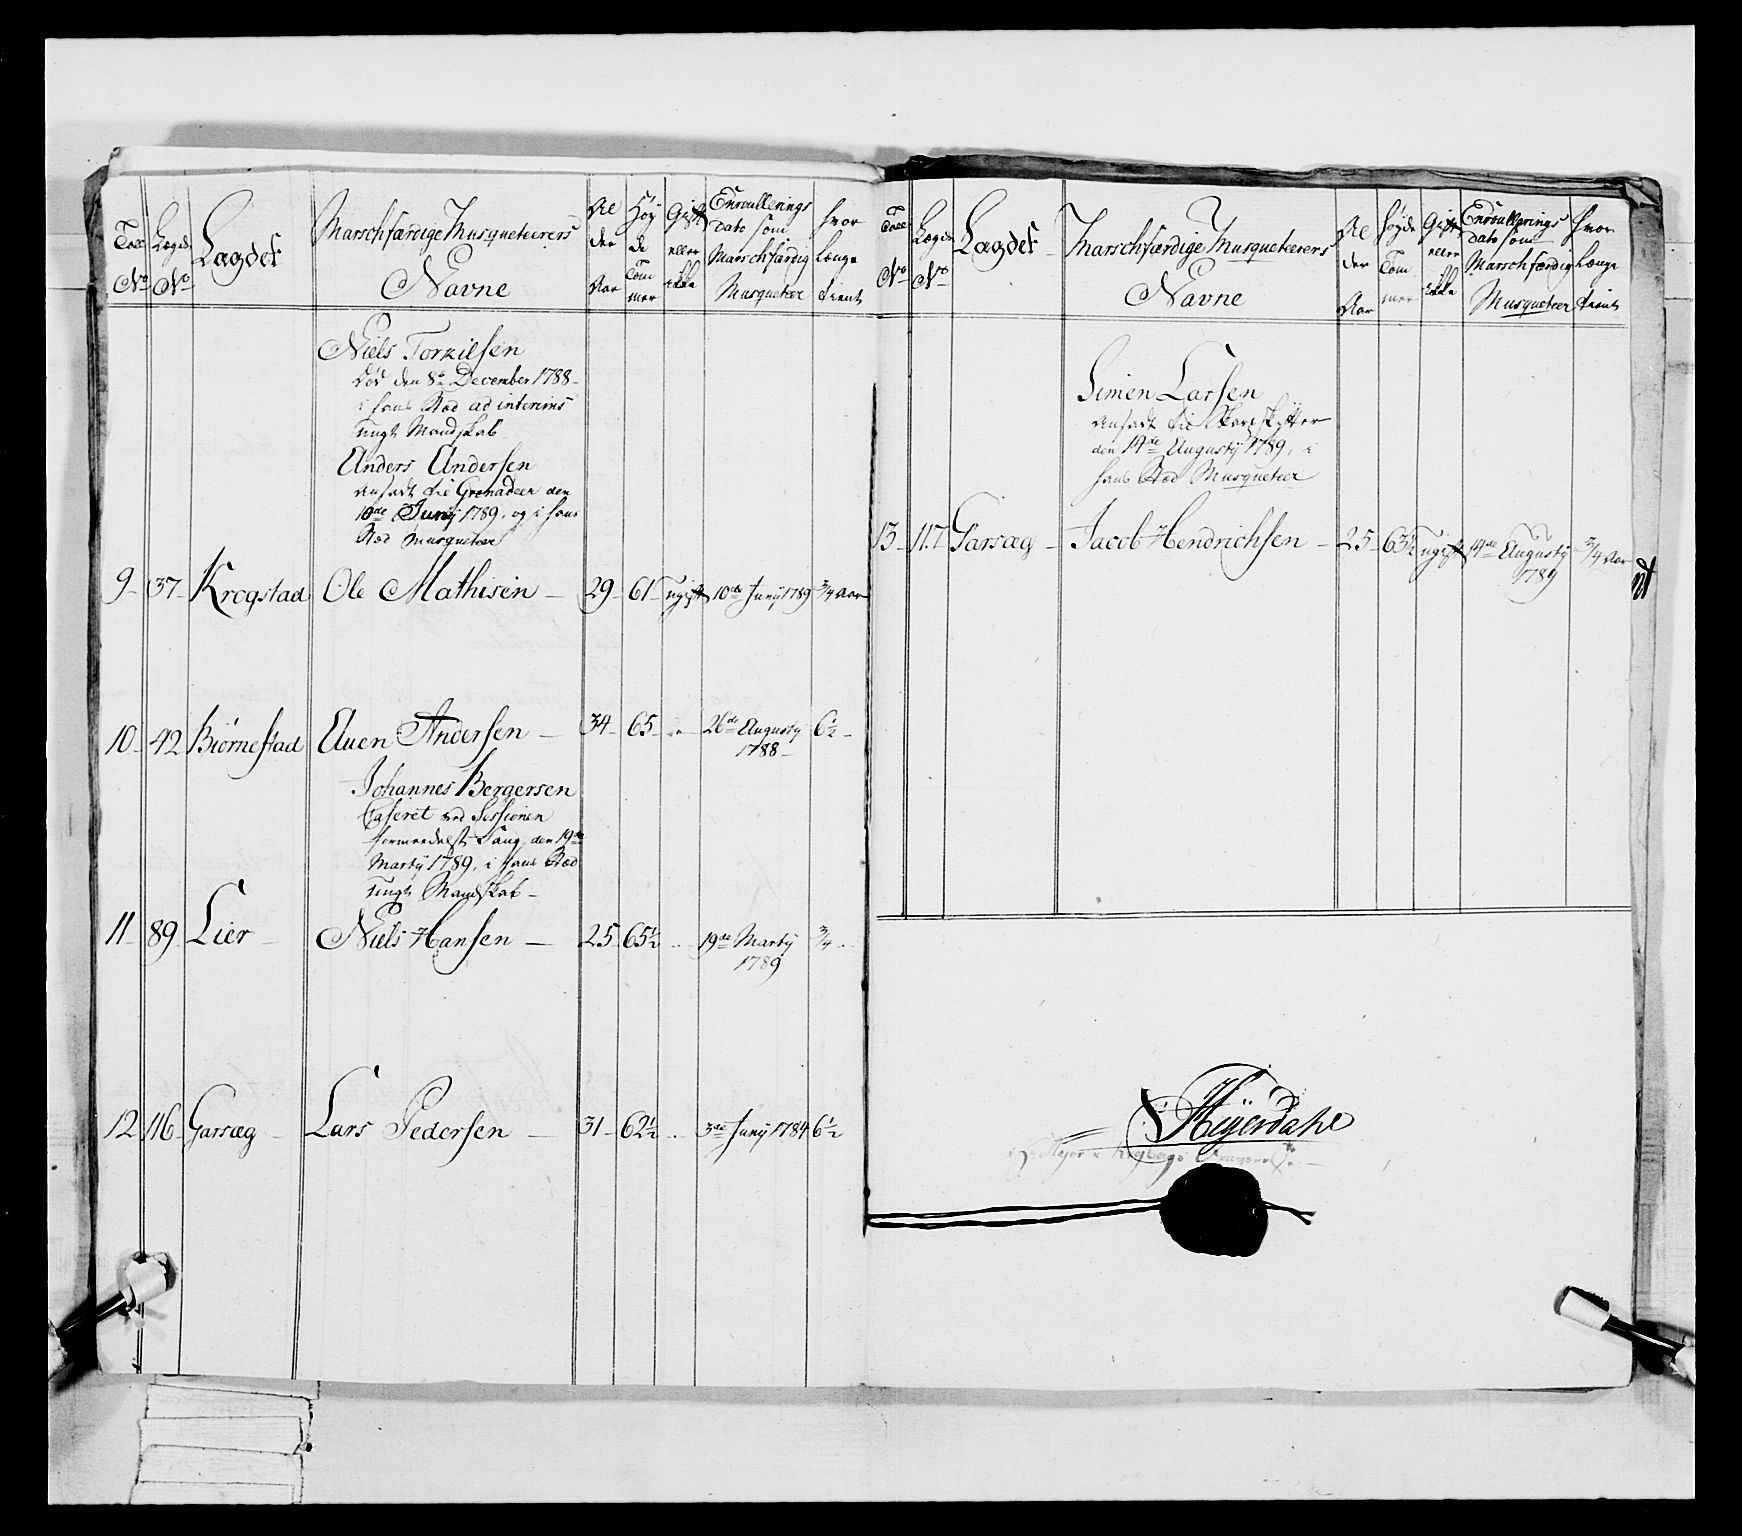 Tall No
Lægds No
Lægdet
Marschfærdige Musqueteerers
Navne
Al
der
Aar
Høy
de
Tom
mer
Gift
eller
ikke
Enroullerings
dato som
Marschfærdig
Musqueteer
hvor
længe
tient
Niels Torkilsen
død den 8de December 1788 -
i hans Stæd ad interims
ungt Mandskab
Anders Andersen
ansadt til Grenadeer den
10de Junij 1789, og i hans
Stæd Musqueteer
9 - 37 - Krogstad Ole Mathisen - 29 - 61 - ugift 10de Junij 1789 3/4 Aar
10 - 42 Biørnestad Even Andersen - 34 - 65 - 26de Augusty 6 1/2 -
1788 -
Johannes Bergersen
Casseret ved Sessionen
formedelst Svag, den 19de
Martij 1789, i hans Stæd
ungt Mandskab -
11 - 89 Lier - Niels Hansen - 25 - 65 1/2 - 19de Martij 3/4 -
1789
12 116 - Garsæg - Lars Pedersen - 31 - 62 1/2 - 3de Junij 1784 6 1/2
Tall No
Lægds No
Lægdet
Marschfærdige Musqueteerers
Navne
Al
der
Aar
Høyde
Tom
mer
Gift
eller
ikke
Enroullerings
dato som
Marschfærdig
Musqueteer
hvor
Længe
tient
Simen Larsen
ansadt til Skarpskytter
den 14de Augustij 1789, i
hans Stæd Musqueteer
13 - 117 Garsæg - Jacob Hendrichsen - 25 - 63 1/2 ugift 14de Augustij 3/4 Aar
1789
Heyerdahl